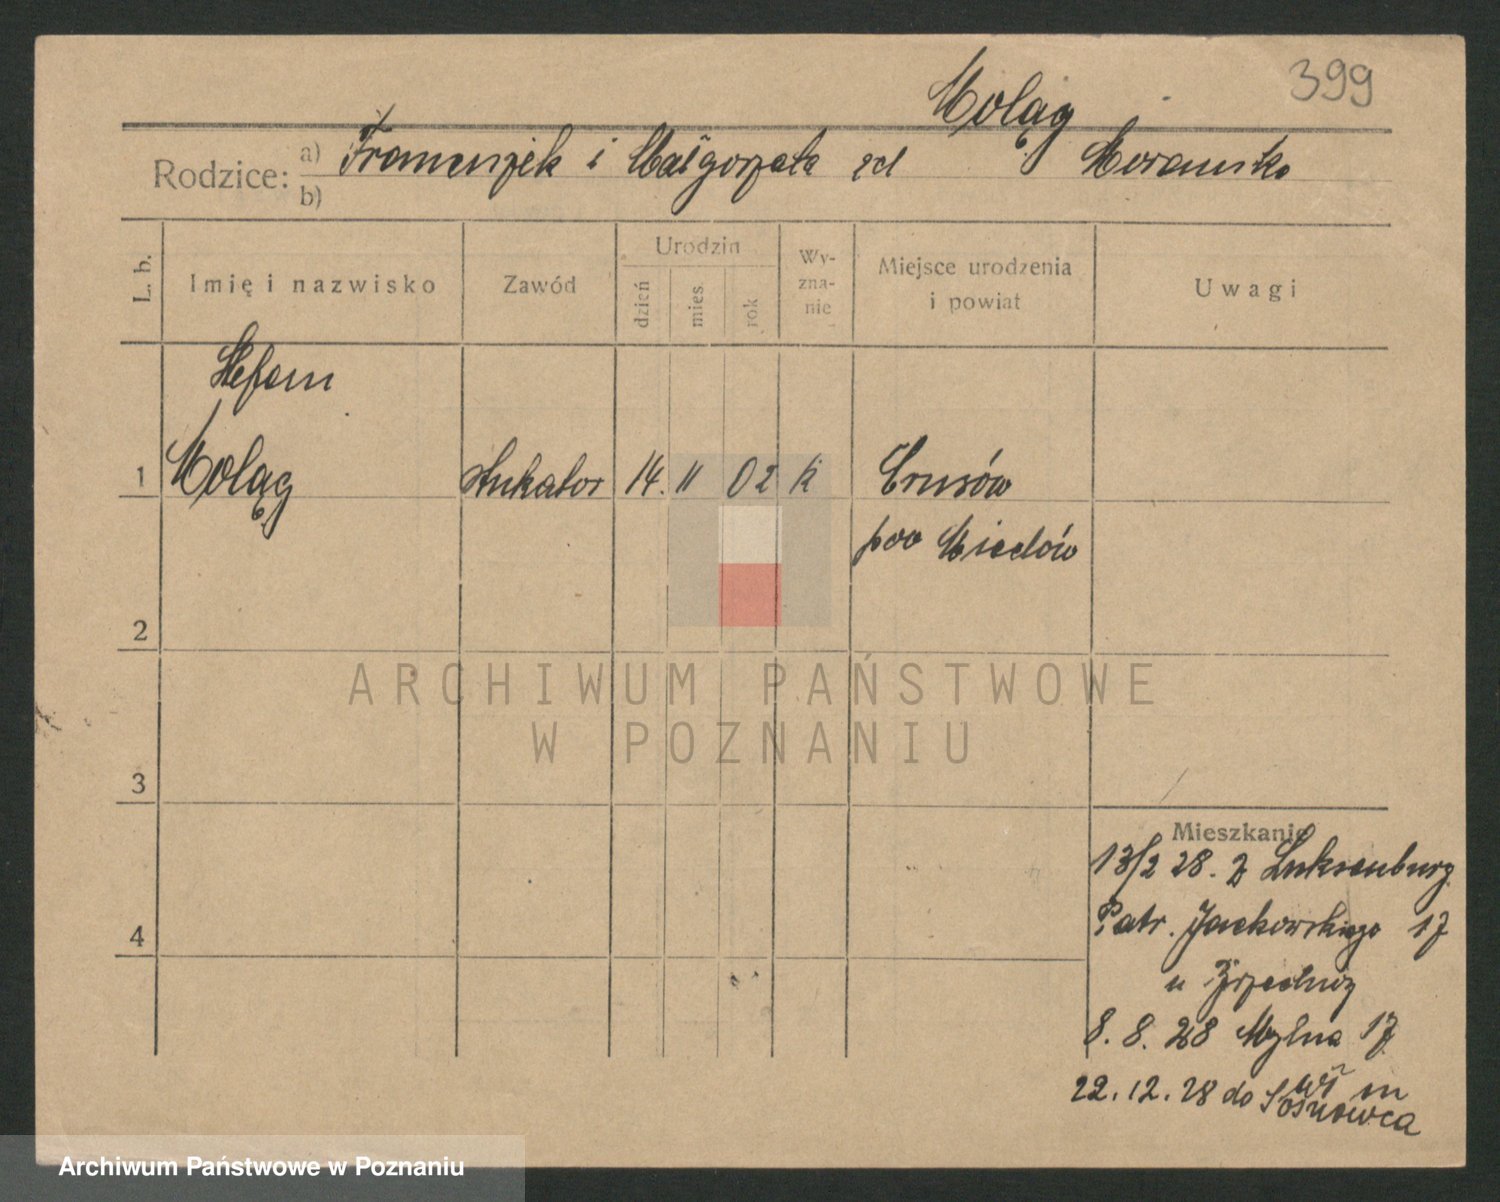 399
Moląg
Rodzice: a) Franciszek i Małgorzata zd Morawska
b)
L. b. Imię i nazwisko Zawód Urodzin dzień mies. rok Wy-zna-nie Miejsce urodzenia i powiat Uwagi
Stefan
1 Moląg stukator 14. II 02 k Crusów
pow Miechów
2
ARCHIWUM PAŃSTWOWE
W POZNANIU
3
4
Mieszkanie
13/2 28. z Luksenburg
Patr. Jackowskiego 17
u
8. 8. 28 Mylna 17
22. 12. 28 do Sosnowca
Archiwum Państwowe w Poznaniu